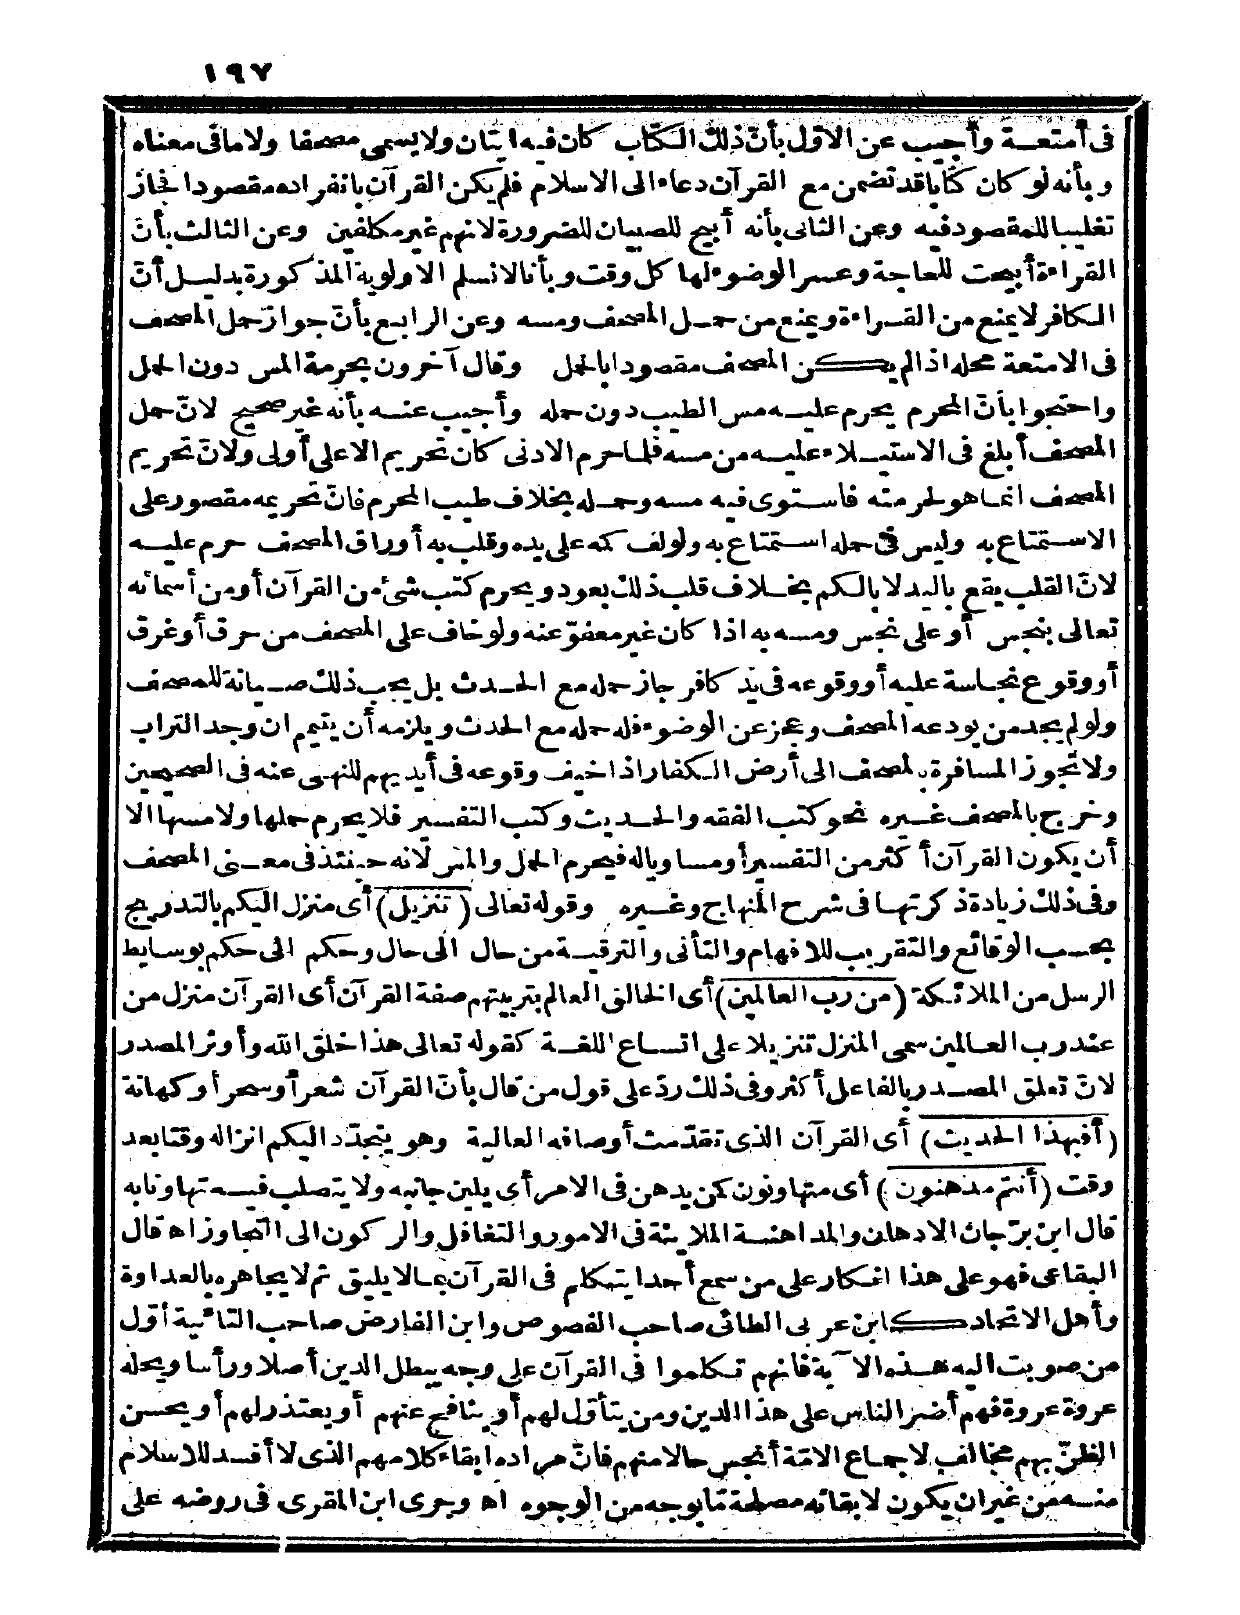 ١٩٧
فى أمتعة وأجيب عن الاوّل بأنّ ذلك الكتاب كان فيه ايتان ولا يسمى مصحفا ولا ما فى معناه
وبأنه لو كان كتابا قد تضمن مع القرآن دعاء الى الاسلام فلم يكن القرآن بانفراده مقصودا فجاز
تغليبا للمقصود فيه وعن الثانى بأنه أبيح للصبيان للضرورة لانهم غير مكلفين وعن الثالث بأنّ
القراءة أبيحت للحاجة وعسر الوضوء لها كل وقت وبأنا لانسلم الاولوية المذكورة بدليل أنّ
الكافر لا يمنع من القراءة ويمنع من حمل المصحف ومسه وعن الرابع بأنّ جواز حمل المصحف
فى الامتعة محله اذا لم يكن المصحف مقصودا بالحمل وقال آخرون بحرمة المس دون الحمل
واحتجوا بأنّ المحرم يحرم عليه مس الطيب دون حمله وأجيب عنه بأنه غير صحيح لانّ حمل
المصحف أبلغ فى الاستيلاء عليه من مسه فلما حرم الادنى كان تحريم الاعلى أولى ولانّ تحريم
المصحف انما هو لحرمته فاستوى فيه مسه وحمله بخلاف طيب المحرم فانّ تحريمه مقصور على
الاستمتاع به وليس فى حمله استمتاع به ولو لف كمه على يده وقلب به أوراق المصحف حرم عليه
لانّ القلب يقع باليد لا بالكم بخلاف قلب ذلك بعود ويحرم كتب شئ من القرآن أو من أسمائه
تعالى بنجس أو على نجس ومسه به اذا كان غير معفوّ عنه ولو خاف على المصحف من حرق أو غرق
أو وقوع نجاسة عليه أو وقوعه فى يد كافر جاز حمله مع الحدث بل يجب ذلك صيانة للمصحف
ولو لم يجد من يودعه المصحف وعجز عن الوضوء فله حمله مع الحدث ويلزمه أن يتيمم ان وجد التراب
ولا تجوز المسافرة بالمصحف الى أرض الكفار اذا خيف وقوعه فى أيديهم للنهى عنه فى الصحيحين
وخرج بالمصحف غيره نحو كتب الفقه والحديث وكتب التفسير فلا يحرم حملها ولا مسها الا
أن يكون القرآن أكثر من التفسير أو مساويا له فيحرم الحمل والمس لانه حينئذ فى معنى المصحف
وفى ذلك زيادة ذكرتها فى شرح المنهاج وغيره وقوله تعالى (تنزيل) أى منزل اليكم بالتدريج
بحسب الوقائع والتقريب للافهام والتأنى والترقية من حال الى حال وحكم الى حكم بوسايط
الرسل من الملائكة (من رب العالمين) أى الخالق العالم بتربيتهم صفة القرآن أى القرآن منزل من
عند رب العالمين سمى المنزل تنزيلا على اتساع اللغة كقوله تعالى هذا خلق الله وأوثر المصدر
لانّ تعلق المصدر بالفاعل أكثر وفى ذلك ردّ على قول من قال بأنّ القرآن شعر أو سحر أو كهانة
(أفبهذا الحديث) أى القرآن الذى تقدّمت أوصافه العالية وهو يتجدّد اليكم انزاله وقتا بعد
وقت (أنتم مدهنون) أى متهاونون كمن يدهن فى الامر أى يلين جانبه ولا يتصلب فيه تهاونا به
قال ابن برّجان الادهان والمداهنة الملاينة فى الامور والتغافل والركون الى التجاوز اه قال
البقاعى فهو على هذا انكار على من سمع أحدا يتكلم فى القرآن بما لا يليق ثم لا يجاهره بالعداوة
وأهل الاتحاد كابن عربى الطائى صاحب الفصوص وابن الفارض صاحب التائية أوّل
من صوبت اليه هذه الآية فانهم تكلموا فى القرآن على وجه يبطل الدين أصلا ورأسا ويحله
عروة عروة فهم أضر الناس على هذا الدين ومن يتأوّل لهم أو ينافح عنهم أو يعتذر لهم أو يحسن
الظنّ بهم مخالف لاجماع الامّة أنجس حالا منهم فانّ مراده ابقاء كلامهم الذى لا أفسد للاسلام
منه من غير ان يكون لابقائه مصلحة مّا بوجه من الوجوه اه وجرى ابن المقرى فى روضه على